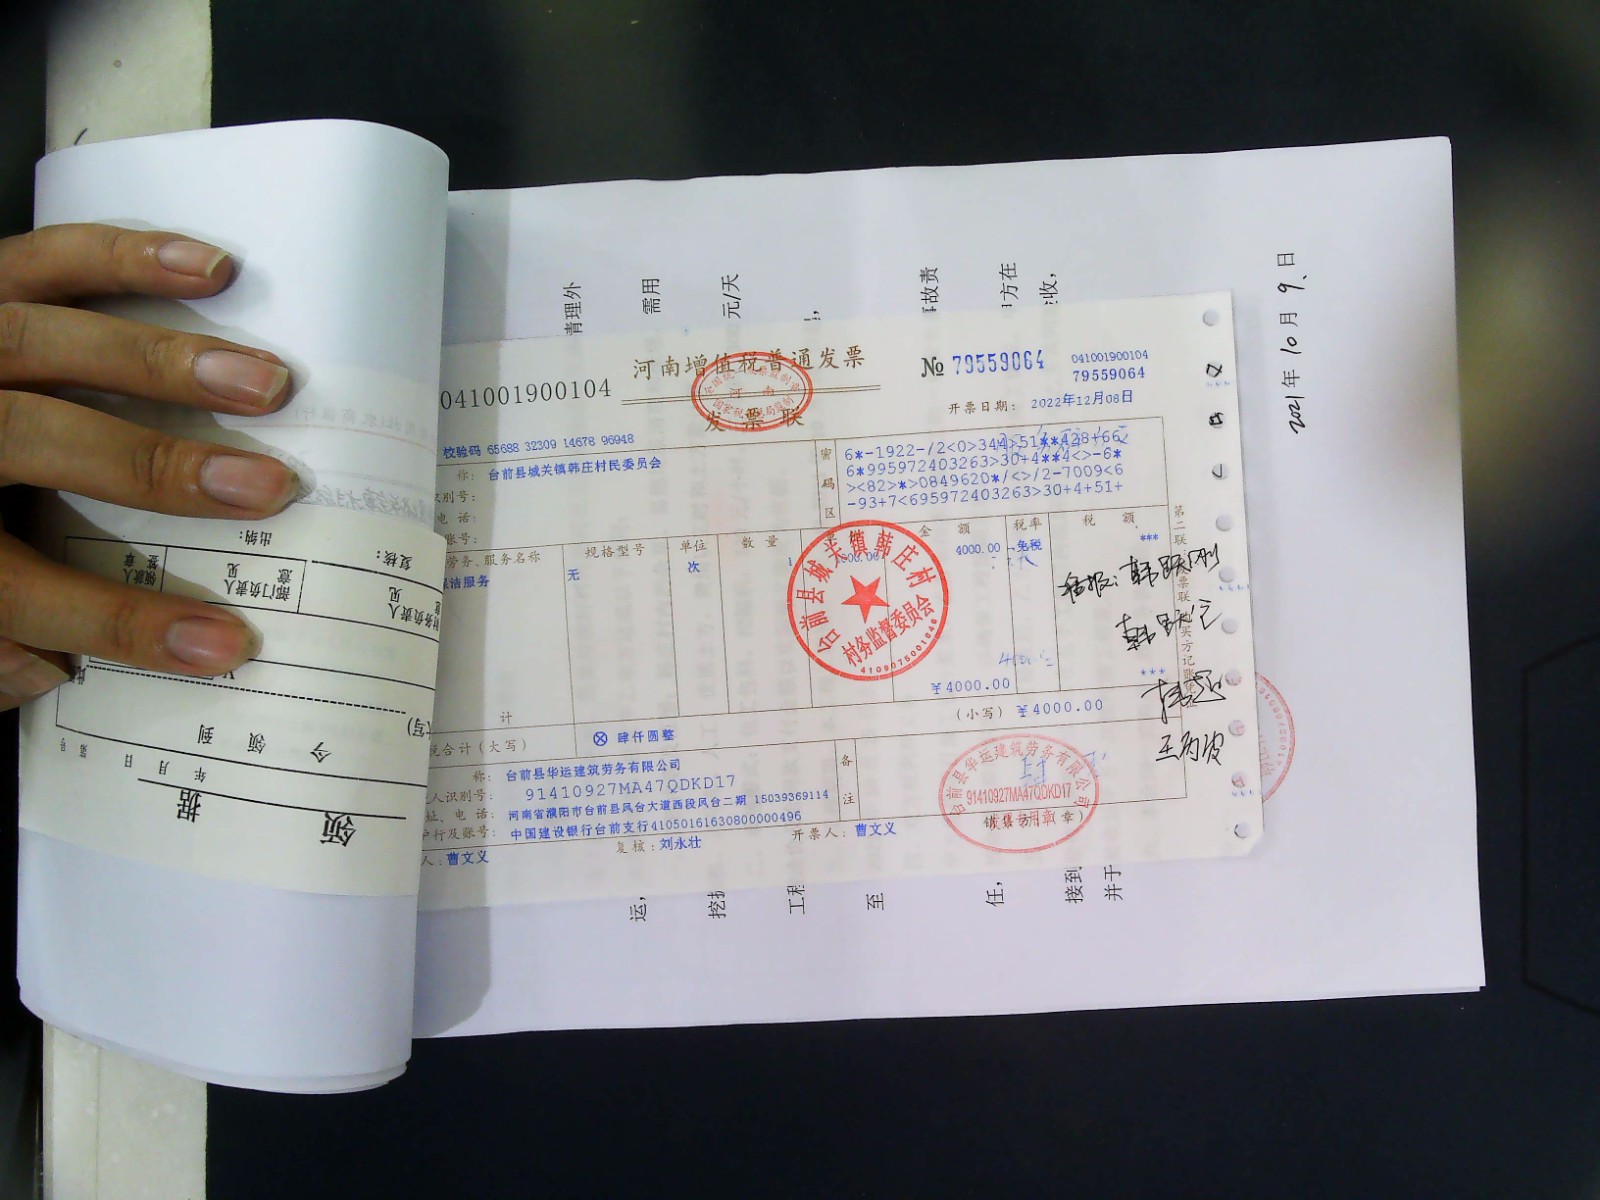 041001900104
河南增值税普通发票
发票联
№ 79559064
041001900104
79559064
开票日期: 2022年12月08日
校验码 65688 32309 14678 96948
称: 台前县城关镇韩庄村民委员会
识别号:
电话:
账号:
密码区
6*-1922-/2<0>344>51**428+66
6*995972403263>30+4**4<>-6*
><82>*>0849620*/<>/2-7009<6
-93+7<695972403263>30+4+51+
劳务、服务名称 规格型号 单位 数量 金额 税率 税额
保洁服务 无 次 1 4000.00 免税 ***
计 ¥4000.00 ***
税合计(大写) ⊗ 肆仟圆整 (小写) ¥4000.00
称: 台前县华运建筑劳务有限公司
人识别号: 91410927MA47QDKD17
址、电话: 河南省濮阳市台前县凤台大道西段凤台二期 15039369114
户行及账号: 中国建设银行台前支行41050161630800000496
备注
人: 曹文义 复核: 刘永壮 开票人: 曹文义 (章)
台前县城关镇韩庄村
村务监督委员会
4109075001848
台前县华运建筑劳务有限公司
91410927MA47QDKD17
发票专用章
韩跃刚
2021年10月9日
清理外
需用
元/天
故责
方在
收,
运,
挖掘
工程
至
任,
接到
并于
领据
年 月 日
第 号
今领到
大写)
复核:
出纳:
财务负责人意见
部门负责人意见
领款人签章